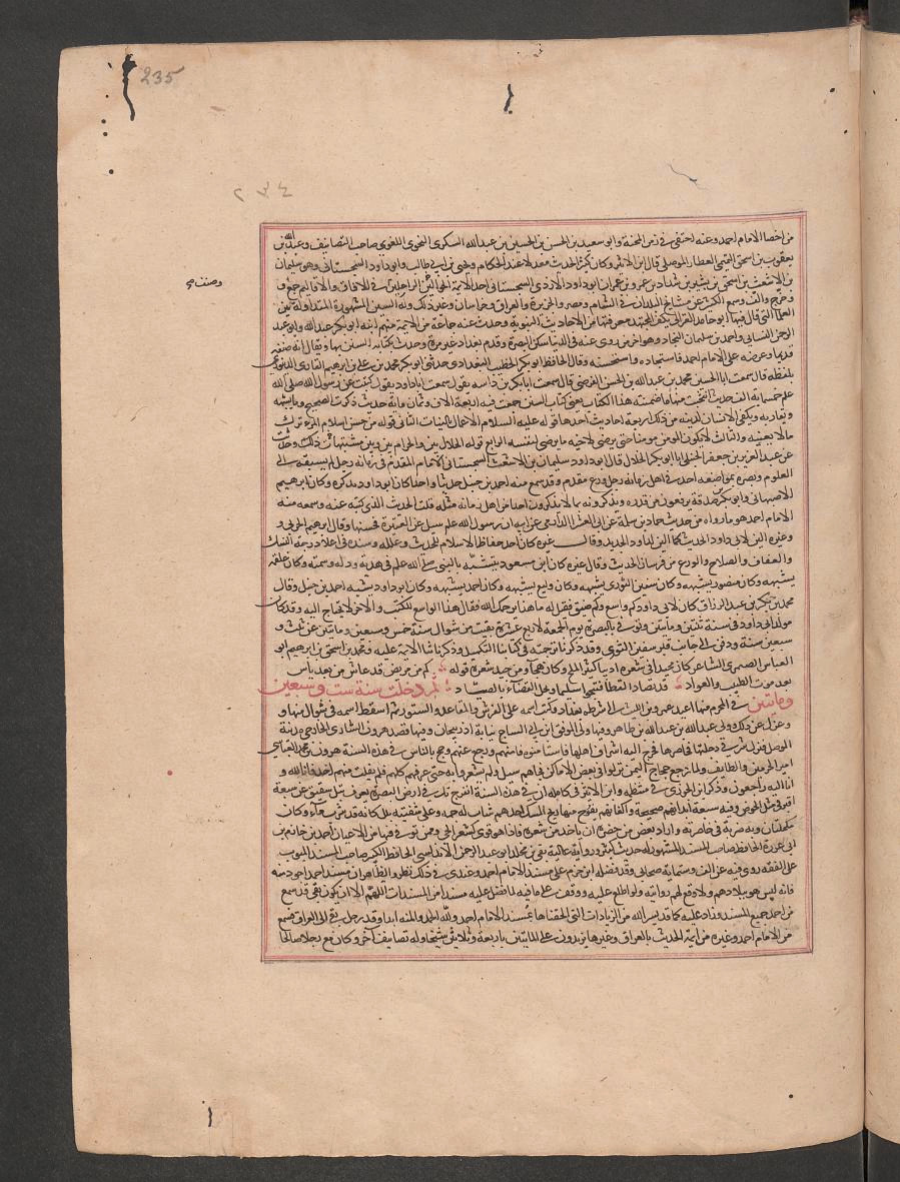 235
٢٣٤
من اخصا الامام احمد وعنه اختفى في زمن المحنة وابو سعيد بن الحسن بن الحسين بن عبدالله السكرى النحوى اللغوى صاحب التصانيف وعبدالله بن
يعقوب بن اسحق التميمى العطار الموصلى قال ابن الاثير وكان كثير الحديث معدلا عند الحكام ويحيى بن ابى طالب وابو داود السجستانى وهو سليمان
بن الاشعث بن اسحق بن بشير بن شداد بن عمرو بن عمران ابو داود الازدى السجستانى احد الائمة الجوالين الراحلين في الافاق والاقاليم جمع و
وصنف
وخرج والف وسمع الكثير عن مشايخ البلدان في الشام ومصر والجزيرة والعراق وخراسان وغير ذلك وله السنن المشهورة المتداولة بين
العلماء التى قال فيها ابو حامد الغزالى يكفى المجتهد معرفتها من الاحاديث النبوية وحدث عنه جماعة من الائمة منهم ابنه ابو بكر عبدالله وابو عبد
الرحمن النسايى واحمد بن سلمان النجاد وهو اخر من روى عنه في الدنيا سكن البصرة وقدم بغداد غير مرة وحدث بكتاب السنن بها ويقال انه صنفه
قديما وعرضه على الامام احمد فاستجاده واستحسنه وقال الحافظ ابو بكر الخطيب البغدادى حدثنى ابو بكر محمد بن على بن ابرهيم القارى الدينورى
بلفظه قال سمعت ابا الحسين محمد بن عبد الله بن الحسن الفرضى قال سمعت ابا بكر بن داسه يقول سمعت ابا داود يقول كتبت عن رسول الله صلى الله
عليه خمسماية الف حديث انتخبت منها ما ضمنته هذا الكتاب يعنى كتاب السنن جمعت فيه اربعة الاف وثمان ماية حديث ذكرت الصحيح وما يشبهه
ويقاربه ويكفى الانسان لدينه من ذلك اربعة احاديث احدها قوله عليه السلام الاعمال بالنيات الثانى قوله من حسن اسلام المرء تركه
مالا يعنيه والثالث لا يكون المومن مومنا حتى يرضى لاخيه ما يرضى لنفسه الرابع قوله الحلال بين والحرام بين وبين ذلك مشتبهات وحدثت
عن عبد العزيز بن جعفر الحنبلى ابا ابو بكر الخلال قال ابو داود سليمان بن الاشعث السجستانى الامام المقدم في زمانه رجل لم يسبقه الى
العلوم وبصره بمواضعه احد في اهل زمانه رجل ورع مقدم وقد سمع منه احمد بن حنبل حديثا واحدا كان ابو داود يذكره وكان ابرهيم
الاصبهانى وابو بكر بن صدقة يرفعون من قدره ويذكرونه بما لا يذكرون احدا من اهل زمانه مثله قلت الحديث الذى كتبه عنه وسمعه منه
الامام احمد هو ما رواه من حديث حماد بن سلمة عن ابى العشراء الدارمى عن ابيه ان رسول الله صلعم سيل عن العتيرة فحسنها وقال ابرهيم الحربى و
وغيره الين لابى داود الحديث كما الين لداود الحديد وقال غيره كان احد حفاظ الاسلام للحديث وعلله وسنده في اعلا درجة النسك
والعفاف والصلاح والورع من فرسان الحديث وقال غيره كان ابن مسعود يتشبه بالنبى صلى الله عليه في هديه ودله وسمته وكان علقمه
يشبهه وكان منصور يشبهه وكان سفين الثورى يشبهه وكان وكيع يشبهه وكان احمد يشبهه وكان ابو داود يشبه احمد بن حنبل وقال
محمد بن بكر بن عبد الرزاق كان لابى داود كم واسع وكم ضيق فقيل له ما هذا يرحمك الله فقال هذا الواسع للكتب والاخر لا يحتاج اليه وقد كان
مولد ابى داود في سنة ثنتين ومأتين وتوفى بالبصرة يوم الجمعة لاربع عشرة بقيت من شوال سنة خمس وسبعين ومايتين عن ثلث و
سبعين سنة ودفن الى جانب قبر سفين الثورى وقد ذكرنا ترجمته في كتابنا التكميل وذكرنا ثناء الائمة عليه ومحمد بن اسحق بن ابرهيم ابو
العباس الصيمرى الشاعر كان مجيدا في شعره اديبا كثير الملح وكان هجاء ومن جيد شعره قوله كم من مريض قد عاش من بعد ياس
بعد موت الطبيب والعواد قد تصاد القطا فتنجو سليما ويحل القضاء بالصياد ثم دخلت سنة ست وسبعين
ومايتين في المحرم منها اعيد عمرو بن الليث الى شرطة بغداد وكتب اسمه على الفرش والمقاعد والستور ثم اسقط اسمه في شوال منها و
وعزل عن ذلك وولى عبدالله بن عبدالله بن طاهر وفيها ولى الموفق ابن ابى الساج نيابة اذربيجان وفيها قصد هرون الشارى الخارجى مدينة
الموصل فنزل شرقى دجلتها فحاصرها فخرج اليه اشراف اهلها فاستامنوه فامنهم ورجع عنهم وحج بالناس في هذه السنة هرون بن محمد العباسى
امير الحرمين والطايف ولما رجع حجاج اليمن نزلوا في بعض الاماكن فجاهم سيل ولم يشعروا به حتى غرقهم كلهم فلم يفلت منهم احد فانا لله و
انا اليه راجعون وذكر ابن الجوزى في منتظمه وابن الاثير في كامله ان في هذه السنة انفرج تل في ارض البصرة يعرف بتل شقيق عن سبعة
اقبر في مثل الحوض وفيه سبعة ابدانهم صحيحة واكفانهم يفوح منها ريح المسك احدهم شاب له جمه وعلى شفتيه بلل كانه قد شرب ماء وكان
مكحلتان وبه ضربة في خاصرته واراد بعض من حضره ان ياخذ من شعره فاذا هو قوى كشعر الحى وممن توفى فيها من الاعيان احمد بن حازم بن
ابى غرزة الحافظ صاحب المسند المشهور له حديث كثير ورواية عالية بقى بن مخلد ابو عبد الرحمن الاندلسى الحافظ الكبير صاحب المسند المبوب
على الفقه روى فيه عن الف وستماية صحابى وقد فضله ابن حزم على مسند الامام احمد وعندى في ذلك نظر والظاهر ان مسند احمد اجود منه
فانه ليس هو ببلادهم ولا وقع لهم روايته ولو اطلع عليه ووقف على ما فيه لما فضل عليه مسندا من المسندات اللهم الا ان يكون بقى قد سمع
من احمد جميع المسند وزاد عليه كما قد يسر الله من الزيادات التى الحقناها بمسند الامام احمد ولله الحمد والمنه ابدا وقد رحل بقى الى العراق فسمع
من الامام احمد وغيره من ايمة الحديث بالعراق وغيرها يزيدون على المايتين باربعة وثلاثين شيخا وله تصانيف اخر وكان مع رجلا صالحا